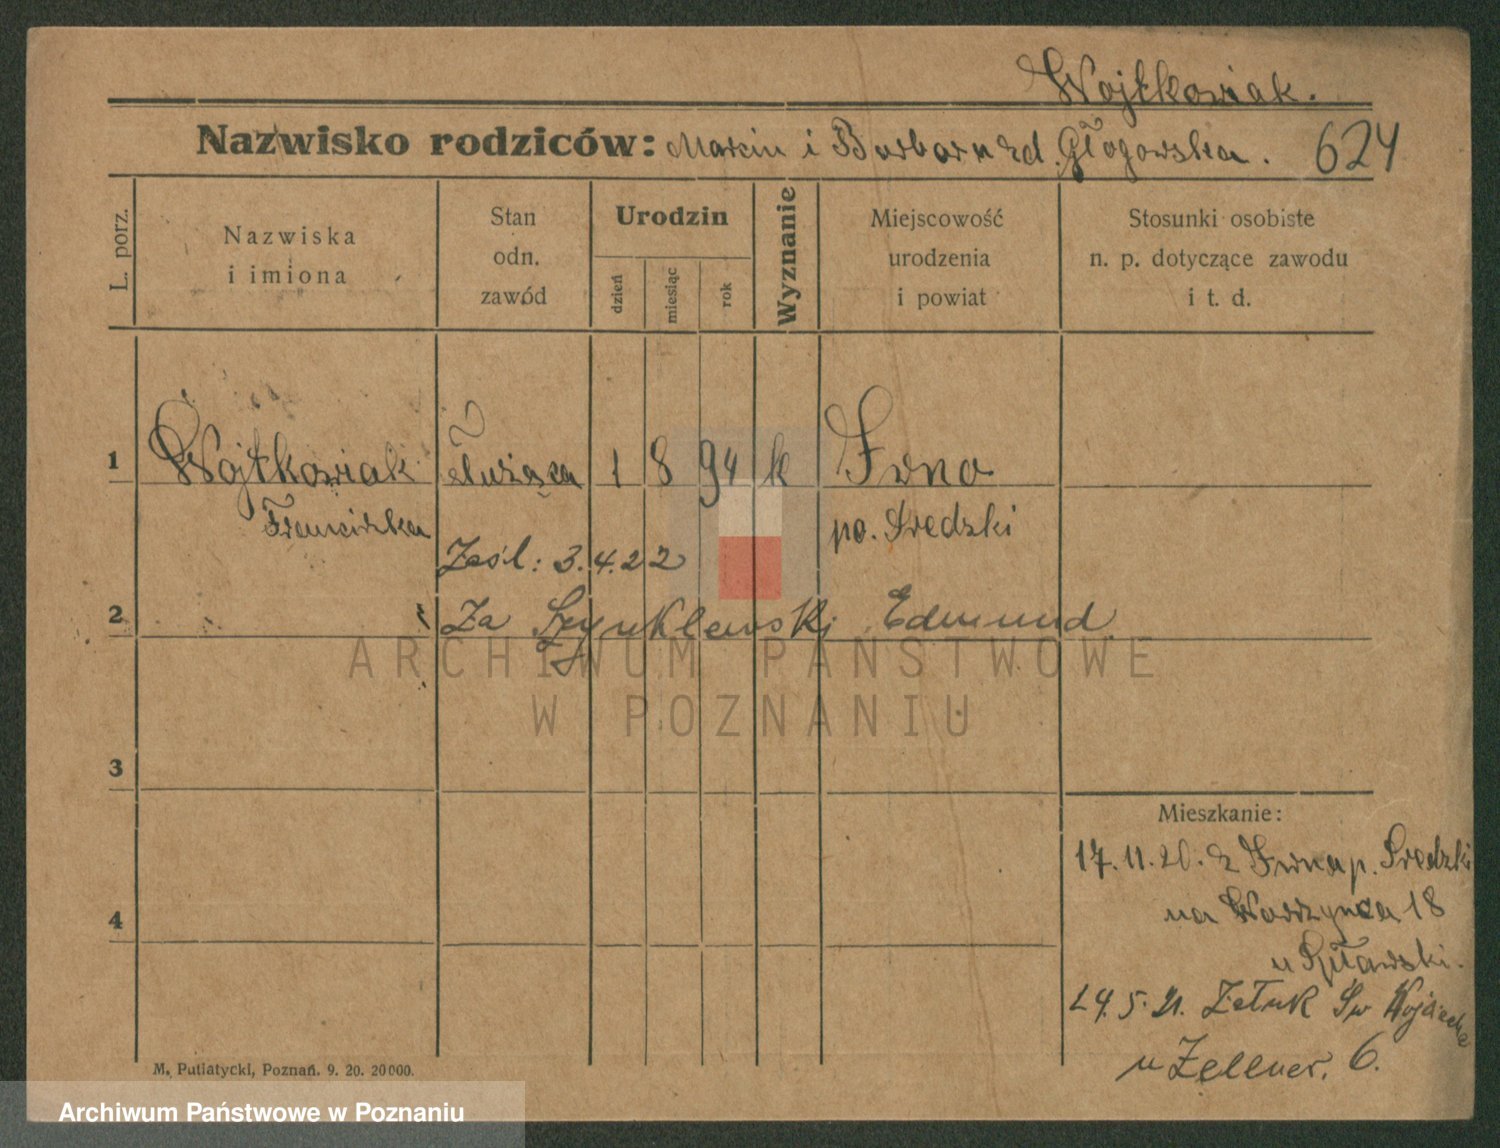 Wojtkowiak.
Nazwisko rodziców: Marcin i Barbara zd. Głogowska. 624
L. porz.
Nazwiska
i imiona
Stan
odn.
zawód
Urodzin
dzień
miesiąc
rok
Wyznanie
Miejscowość
urodzenia
i powiat
Stosunki osobiste
n. p. dotyczące zawodu
i t. d.
1 Wojtkowiak służąca 1 8 94 k
Franciszka po. Sredzki
Zaśl: 3.4.22
2 Za Edmund
ARCHIWUM PAŃSTWOWE
W POZNANIU
3
Mieszkanie:
17.11.20. z p. Sredzki
4 na Wawrzynca 18
u
24.5.21. Św Wojciecha
u Zellner. 6.
M. Putiatycki, Poznań. 9. 20. 20000.
Archiwum Państwowe w Poznaniu